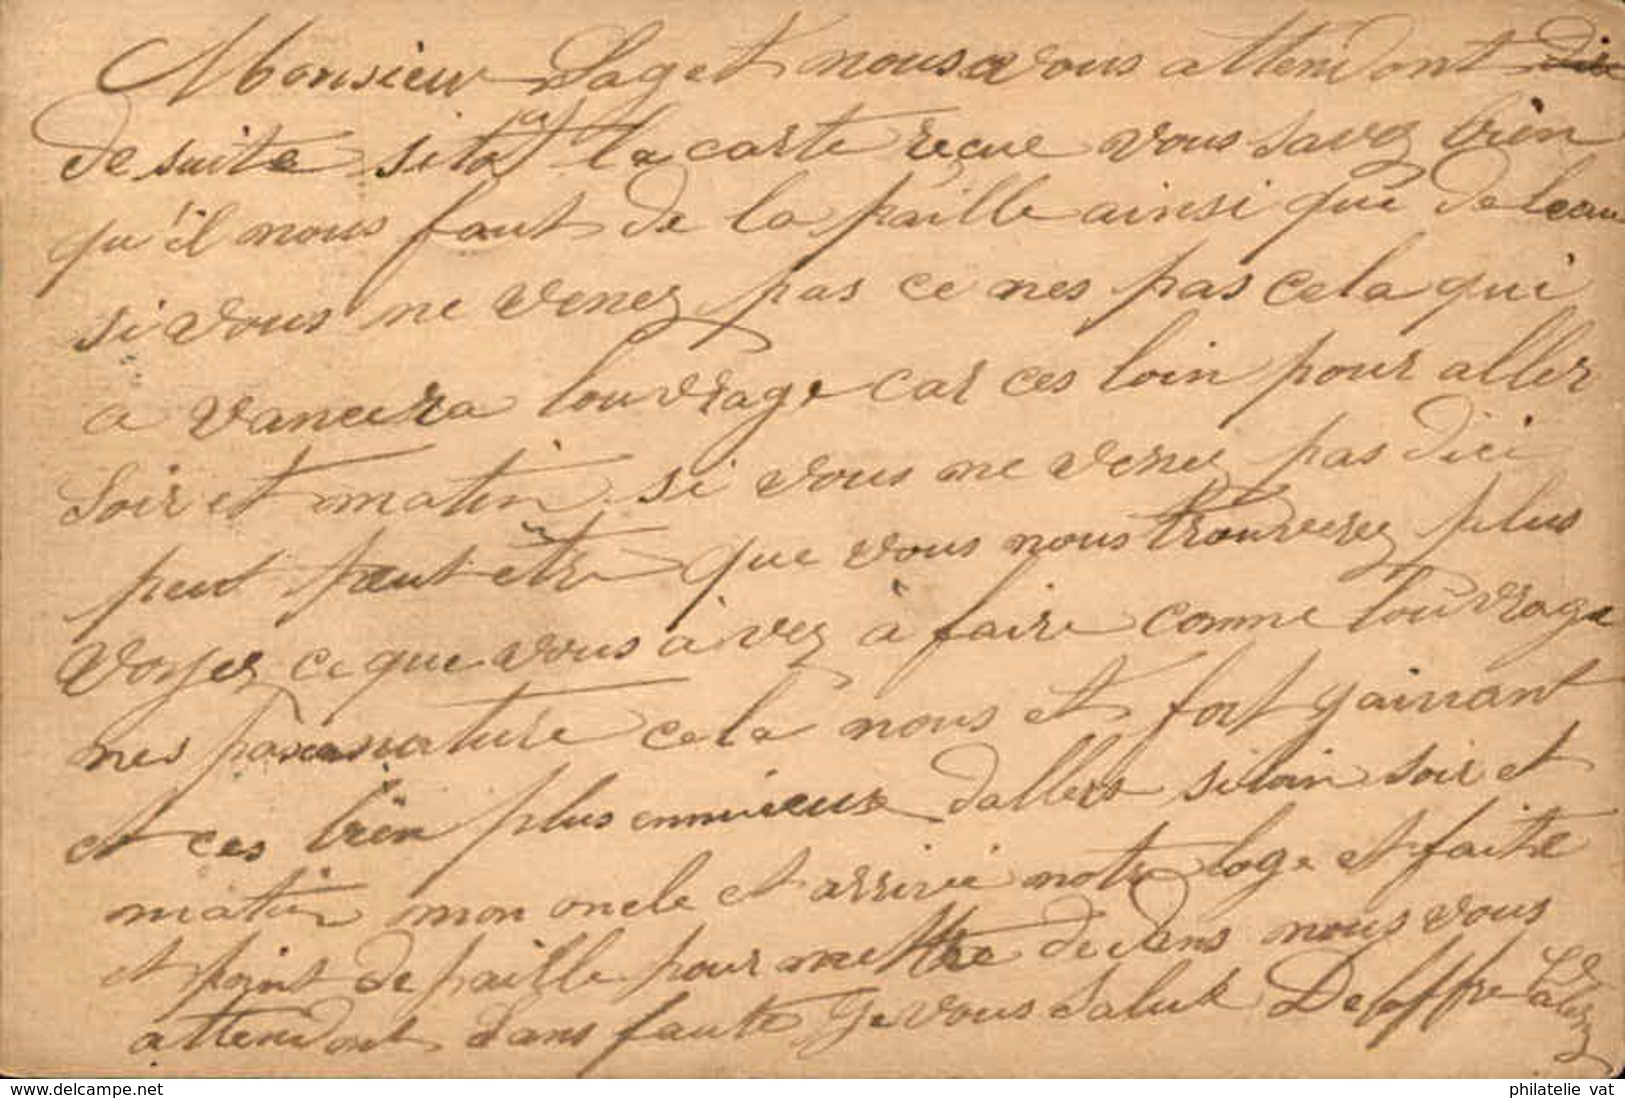 Monsieur Saget nous vous attendont
de suite sito la carte reçue vous savez bien
qu'il nous faut de la paille ainsi que de leau
si vous ne venez pas ce nes pas cela qui
a vancera louvrage car ces loin pour aller
soir et matin si vous ne venez pas dici
peut être que vous nous trouverez plus
voyez ce que vous à vez à faire comme louvrage
nes pas nature cela nous et fort gainant
et ces bien plus ennuieux dallers si loin soir et
matin mon oncle et arrivé notre loge et faite
et point de paille pour mettre dedans nous vous
attendont dans faute Je vous salut Deloffre
www.delcampe.net
philatelie vat